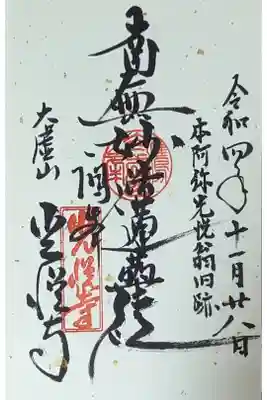 令和四年十一月廿八日
本阿弥光悦翁旧跡
南無妙法蓮華経
光悦寺
大虚山
光悦寺